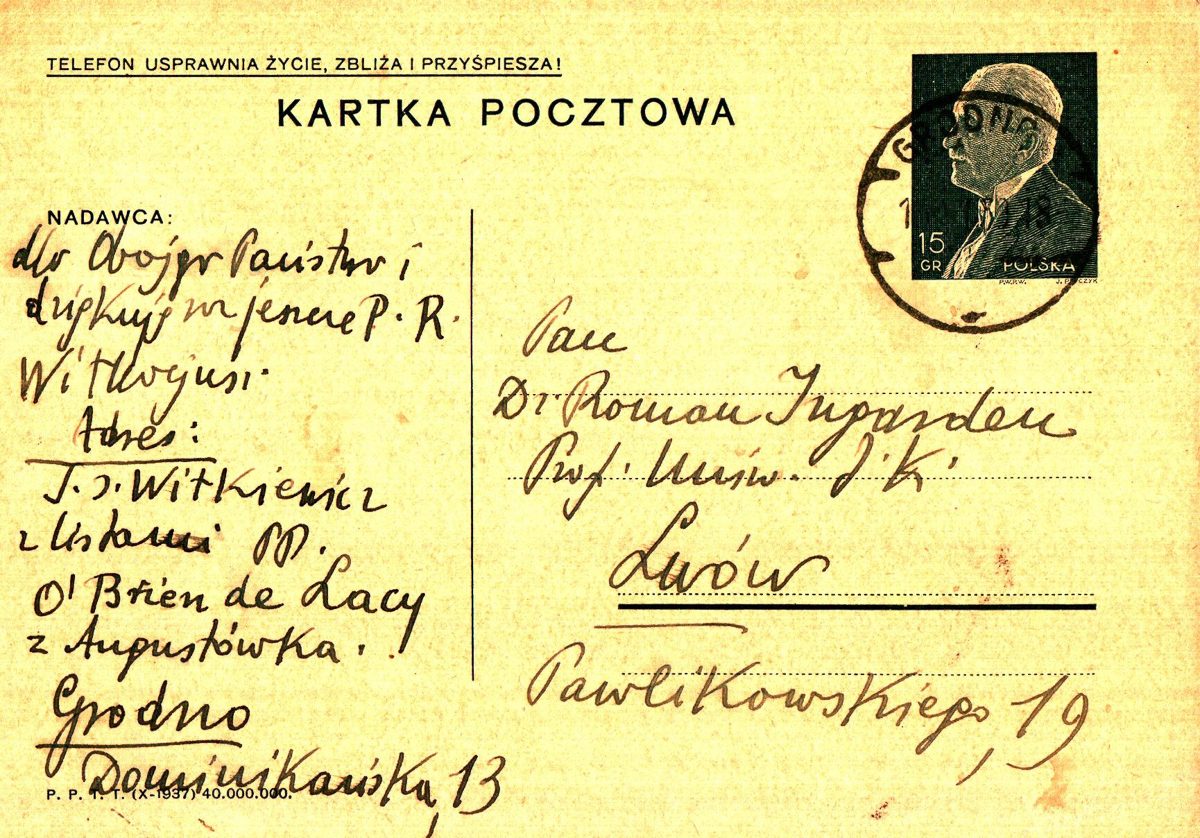 TELEFON USPRAWNIA ŻYCIE, ZBLIŻA I PRZYŚPIESZA!
KARTKA POCZTOWA
GRODNO
15
GR.
POLSKA
P.W.P.W.
NADAWCA:
dla Obojga Państwa i
dziękuję za jeszcze P. R.
Adres:
J. S. Witkiewicz
z listami PP.
O'Brien de Lacy
z Augustówka.
Grodno
Dominikańska, 13
P. P. T. T. (X-1937) 40.000.000.
Pan
Dr Roman Ingarden
Prof. Uniw. J. K.
Lwów
Pawlikowskiego, 19